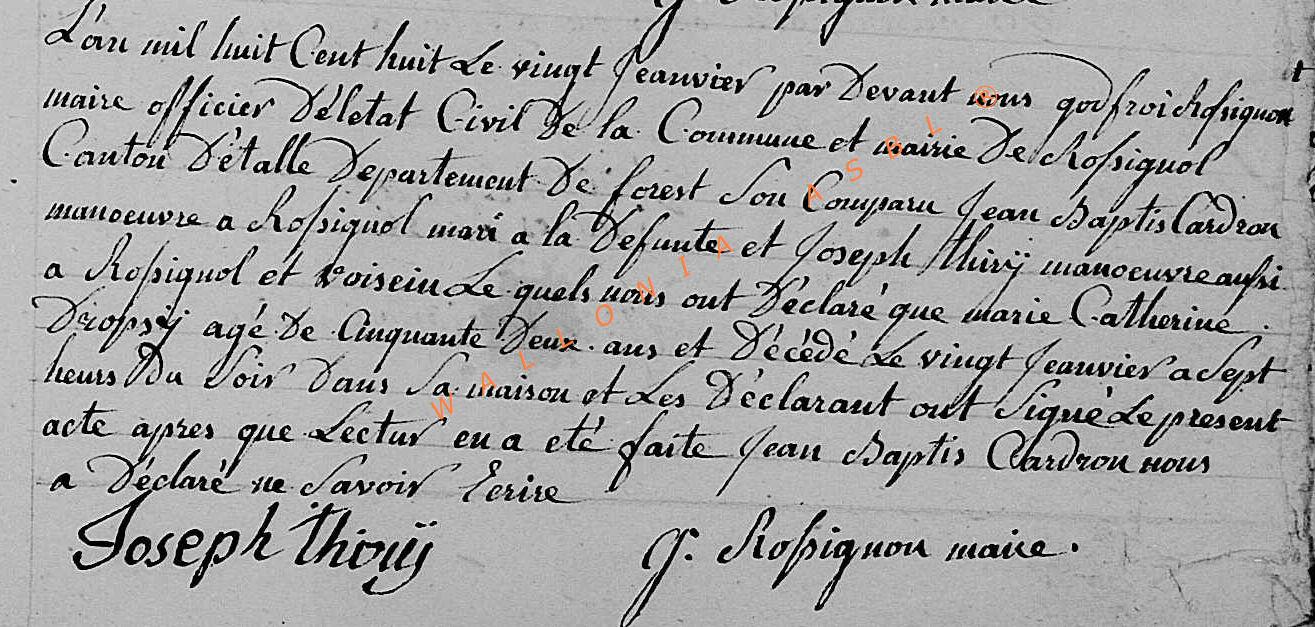 L'an mil huit Cent huit Le vingt Jeanvier par Devant nous godfroi Rossignon
maire officier D'életat Civil De la Commune et mairie De Rossignol
Canton D'étalle Departement De forest Son Comparu Jean Baptis Cardron
manoeuvre a Rossignol mari a la Defunte et Joseph thirÿ manoeuvre aussi
a Rossignol et voisein Le quels nous ont Déclaré que marie Catherine
Dropsÿ agé De Cinquante Deux ans et Décédé Le vingt Jeanvier a Sept
heurs Du Soir Dans Sa maison et Les Déclarant ont Signé Le present
acte apres que Lectur en a eté faite Jean Baptis Cardron nous
a Déclaré ne Savoir Ecrire
Joseph thirÿ G. Rossignon maire.
WALLONIA ASBL ©